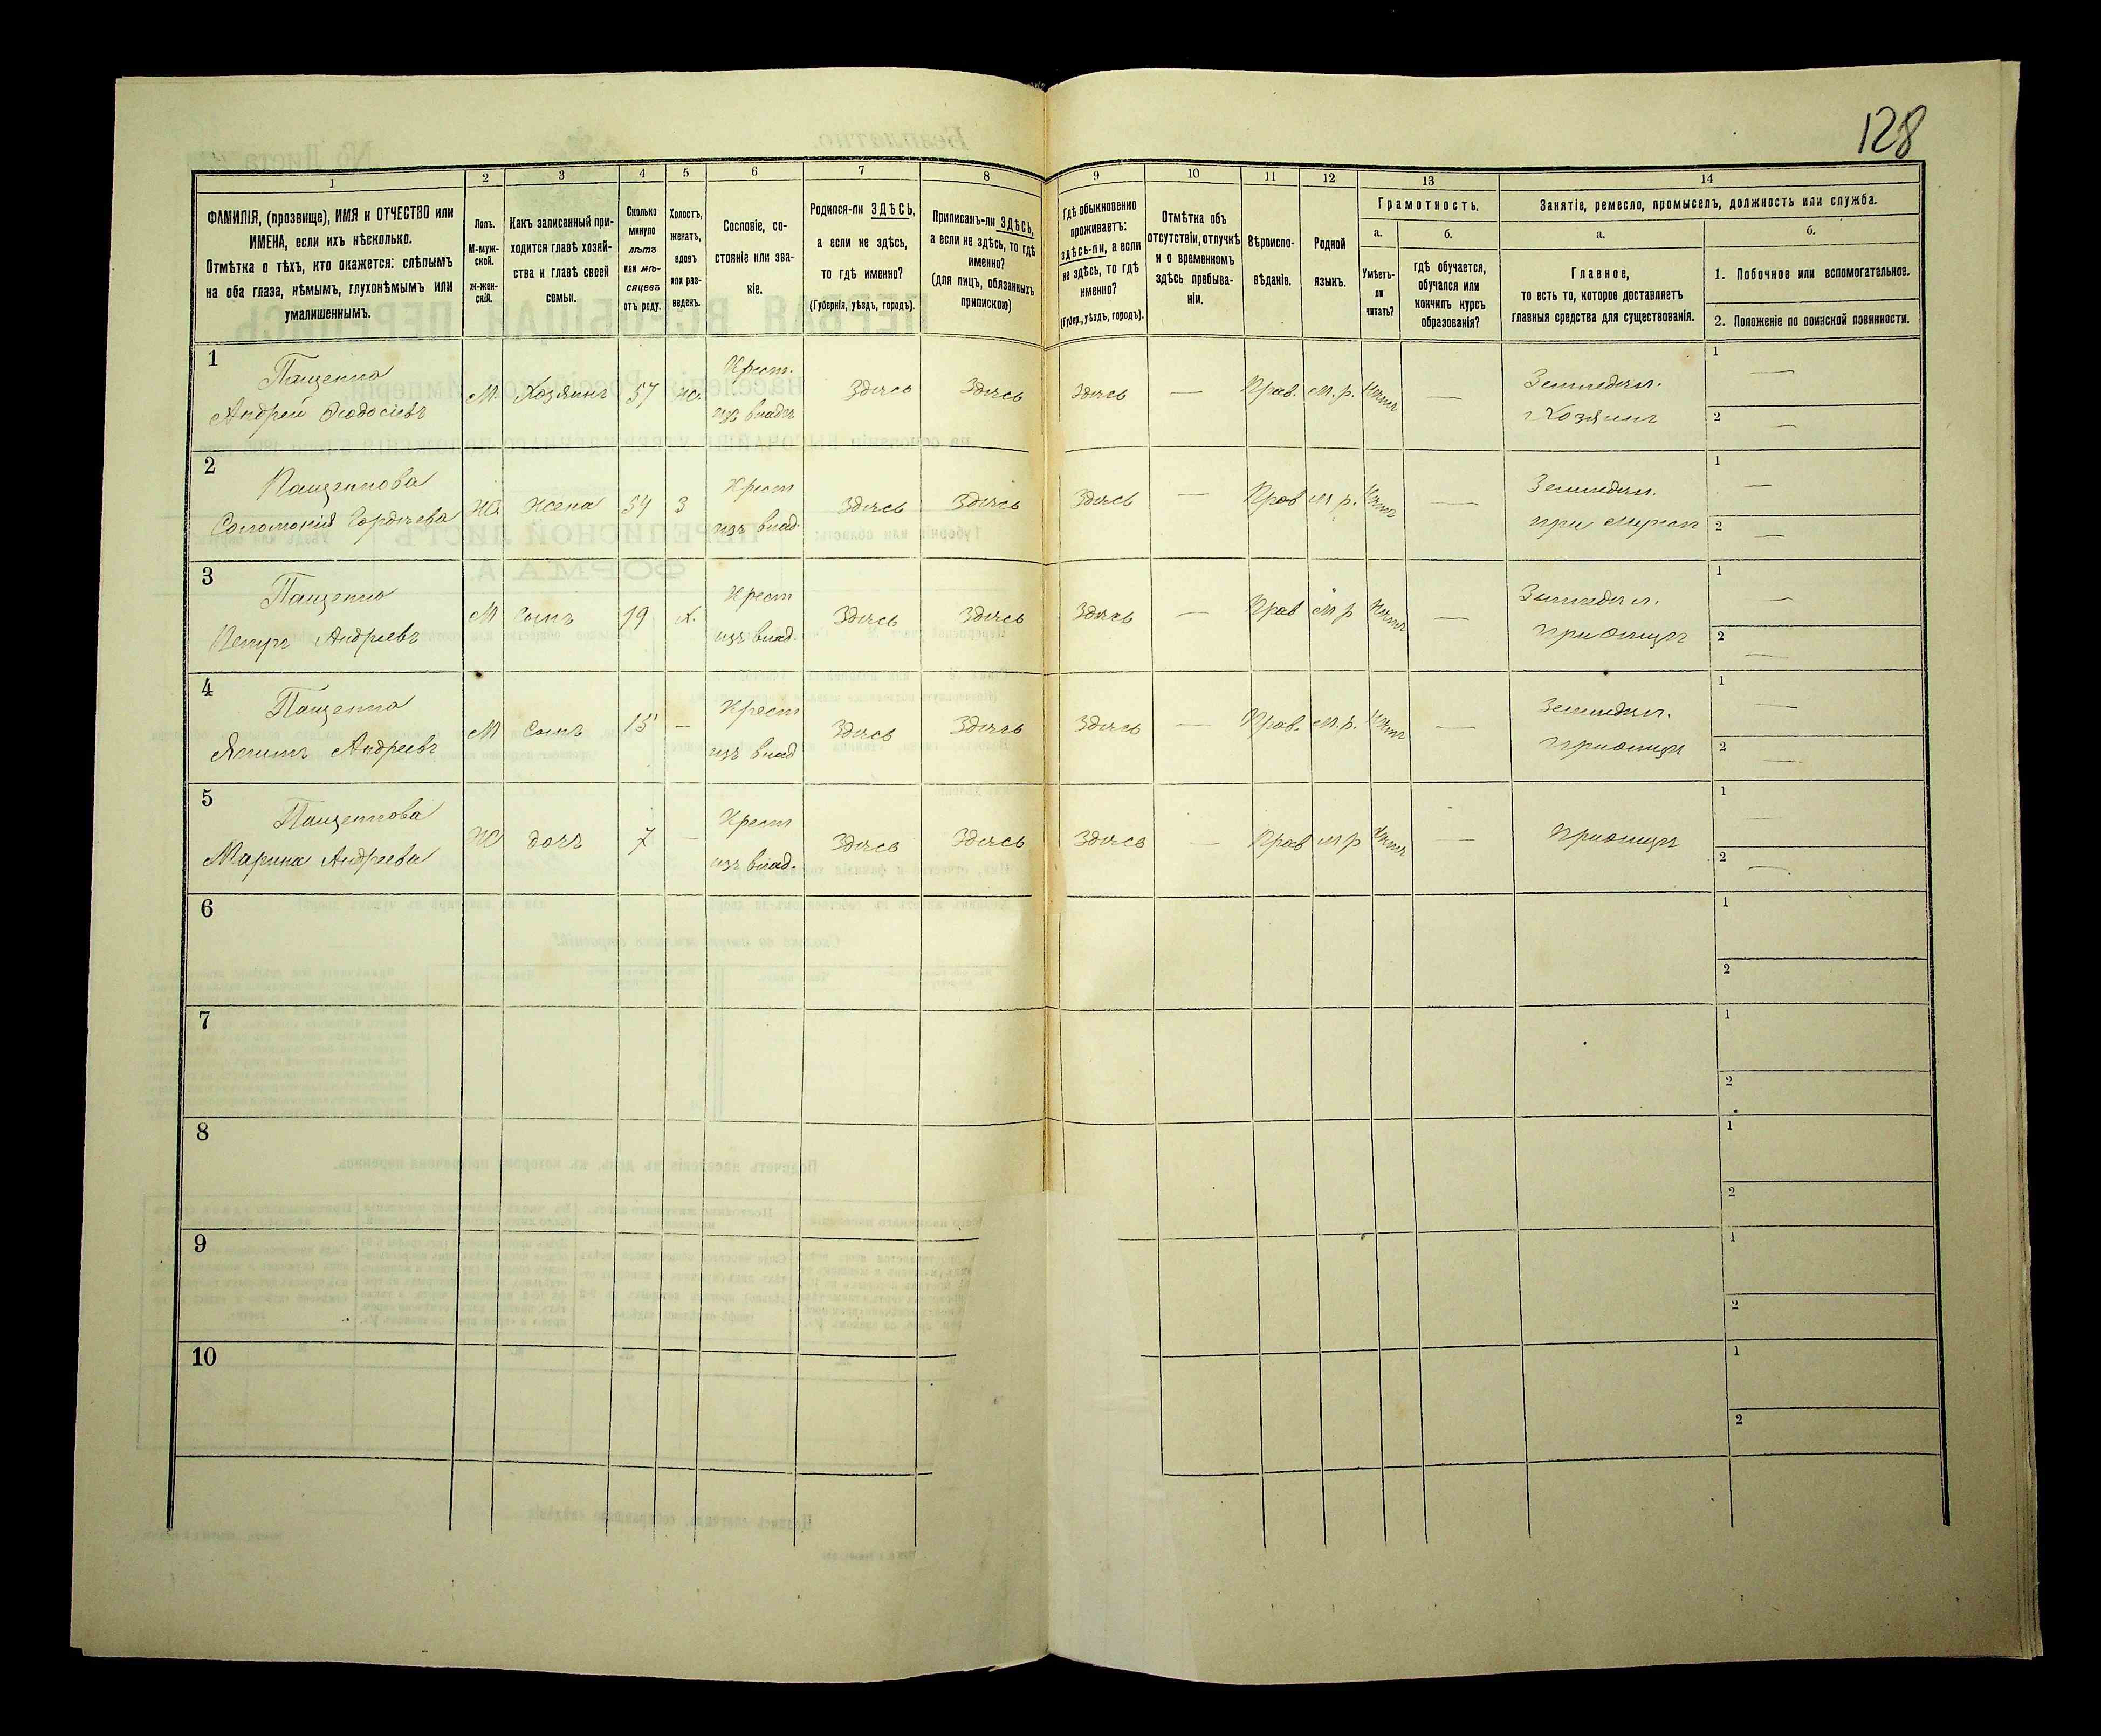 128
1
2
3
4
5
6
7
8
9
10
11
12
13
14
ФАМИЛІЯ, (прозвище), ИМЯ и ОТЧЕСТВО или
ИМЕНА, если ихъ нѣсколько.
Отмѣтка о тѣхъ, кто окажется: слѣпымъ
на оба глаза, нѣмымъ, глухонѣмымъ или
умалишеннымъ.
Полъ.
М-муж-
ской.
ж-жен-
скій.
Какъ записанный при-
ходится главѣ хозяй-
ства и главѣ своей
семьи.
Сколько
минуло
лѣтъ
или мѣ-
сяцевъ
отъ роду.
Холостъ,
женатъ,
вдовъ
или раз-
веденъ.
Сословіе, со-
стояніе или зва-
ніе.
Родился-ли ЗДѢСЬ,
а если не здѣсь,
то гдѣ именно?
(Губернія, уѣздъ, городъ).
Приписанъ-ли ЗДѢСЬ,
а если не здѣсь, то гдѣ
именно?
(для лицъ, обязанныхъ
припискою)
Гдѣ обыкновенно
проживаетъ:
здѣсь-ли, а если
не здѣсь, то гдѣ
именно?
(Губер., уѣздъ, городъ).
Отмѣтка объ
отсутствіи, отлучкѣ
и о временномъ
здѣсь пребыва-
ніи.
Вѣроиспо-
вѣданіе.
Родной
языкъ.
Грамотность.
а.
Умѣетъ-
ли
читать?
б.
гдѣ обучается,
обучался или
кончилъ курсъ
образованія?
Занятіе, ремесло, промыселъ, должность или служба.
а.
Главное,
то есть то, которое доставляетъ
главныя средства для существованія.
б.
1. Побочное или вспомогательное.
2. Положеніе по воинской повинности.
1
Пащенко
Андрей Ѳеодосіевъ
М
Хозяинъ
57
жа.
Крест.
изъ владѣ
Здѣсь
Здѣсь
Здѣсь
—
Прав.
м. р.
Нѣтъ
—
Земледѣл.
Хозяинъ
1 —
2 —
2
Пащенкова
Соломонія Гордѣева
Ж
Жена
54
З
Крест
изъ влад.
Здѣсь
Здѣсь
Здѣсь
—
Прав
м р.
Нѣтъ
—
Земледѣл.
при мужѣ
1 —
2 —
3
Пащенко
Петръ Андреевъ
М
Сынъ
19
х.
Крест
изъ влад.
Здѣсь
Здѣсь
Здѣсь
—
Прав
м р
Нѣтъ
—
Земледѣл.
при отцѣ
1 —
2 —
4
Пащенко
Якимъ Андреевъ
М
Сынъ
15
—
Крест
изъ влад
Здѣсь
Здѣсь
Здѣсь
—
Прав.
м. р.
Нѣтъ
—
Земледѣл.
при отцѣ
1 —
2 —
5
Пащенкова
Марина Андреева
Ж
дочь
7
—
Крест
изъ влад.
Здѣсь
Здѣсь
Здѣсь
—
Прав
м р
Нѣтъ
—
при отцѣ
1 —
2 —
6
1
2
7
1
2
8
1
2
9
1
2
10
1
2